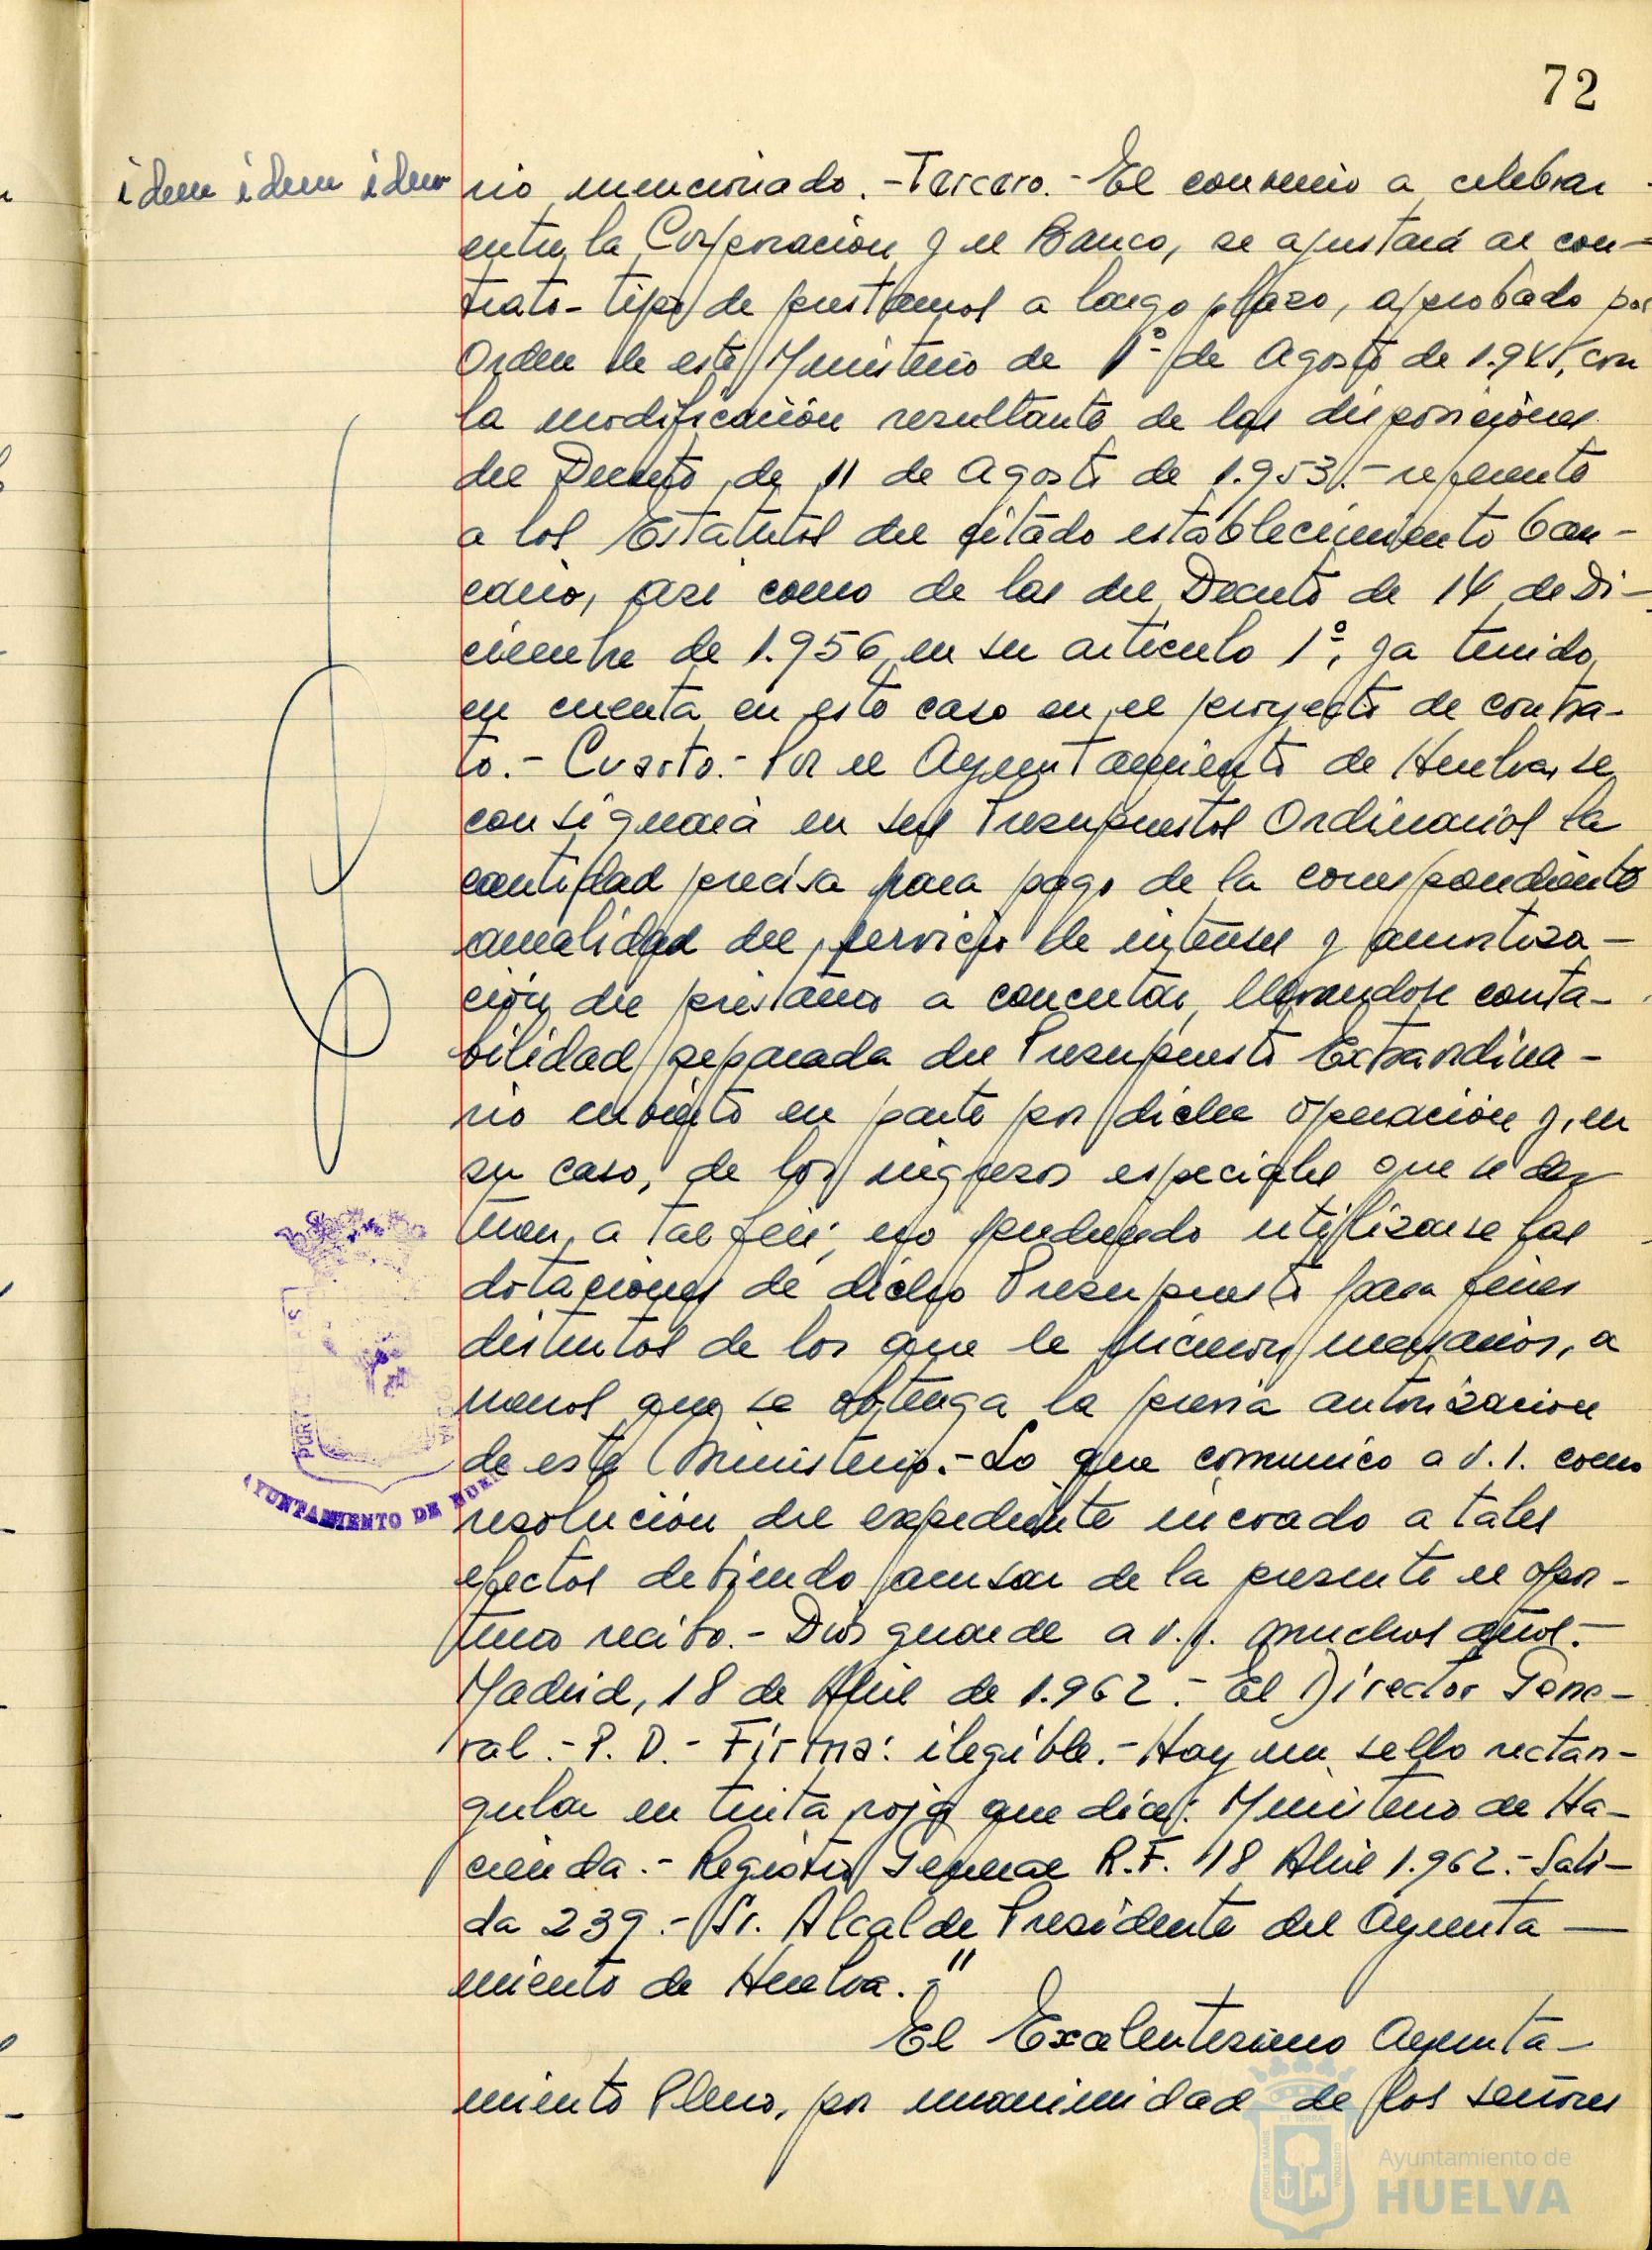 72
idem idem idem
rio mencionado.-Tercero.-El convenio a celebrar
entre la Corporación y el Banco, se ajustará al con-
trato-tipo de prestamos a largo plazo, aprobado por
Orden de este Ministerio de 1º de Agosto de 1.945, con
la modificación resultante de las disposiciones
del Decreto de 11 de Agosto de 1.953.- referente
a los Estatutos del citado establecimiento ban-
cario, asi como de las del Decreto de 14 de Di-
ciembre de 1.956 en su articulo 1º, ya tenido
en cuenta en este caso en el proyecto de contra-
to.- Cuarto.- Por el Ayuntamiento de Huelva se
consignará en sus Presupuestos Ordinarios la
cantidad precisa para pago de la correspondiente
anualidad del servicio de interses y amortiza-
ción del préstamo a concertar, llevandose conta-
bilidad separada del Presupuesto Extraordina-
rio cubierto en parte por dicha operación y, en
su caso, de los ingresos especiales que se des
tinen a tal fin; no pudiendo utilizarse las
dotaciones de dicho Presupuesto para fines
distintos de los que le hicieron necesarios, a
menos que se obtenga la previa autorización
de este Ministerio.- Lo que comunico a V.I. como
resolución del expediente incoado a tales
efectos debiendo acusar de la presente el opor-
tuno recibo.- Dios guarde a V.I. muchos años.-
Madrid, 18 de Abril de 1.962.- El Director Gene-
ral.- P. D.- Firma: ilegible.- Hay un sello rectan-
gular en tinta roja que dice: Ministerio de Ha-
cienda.- Registro General R.F. 18 Abril 1.962.- Sali-
da 239.- Sr. Alcalde Presidente del Ayunta-
miento de Huelva."
El Excelentisimo Ayunta-
miento Pleno, por unanimidad de los señores
AYUNTAMIENTO DE HUELVA
Ayuntamiento de
HUELVA